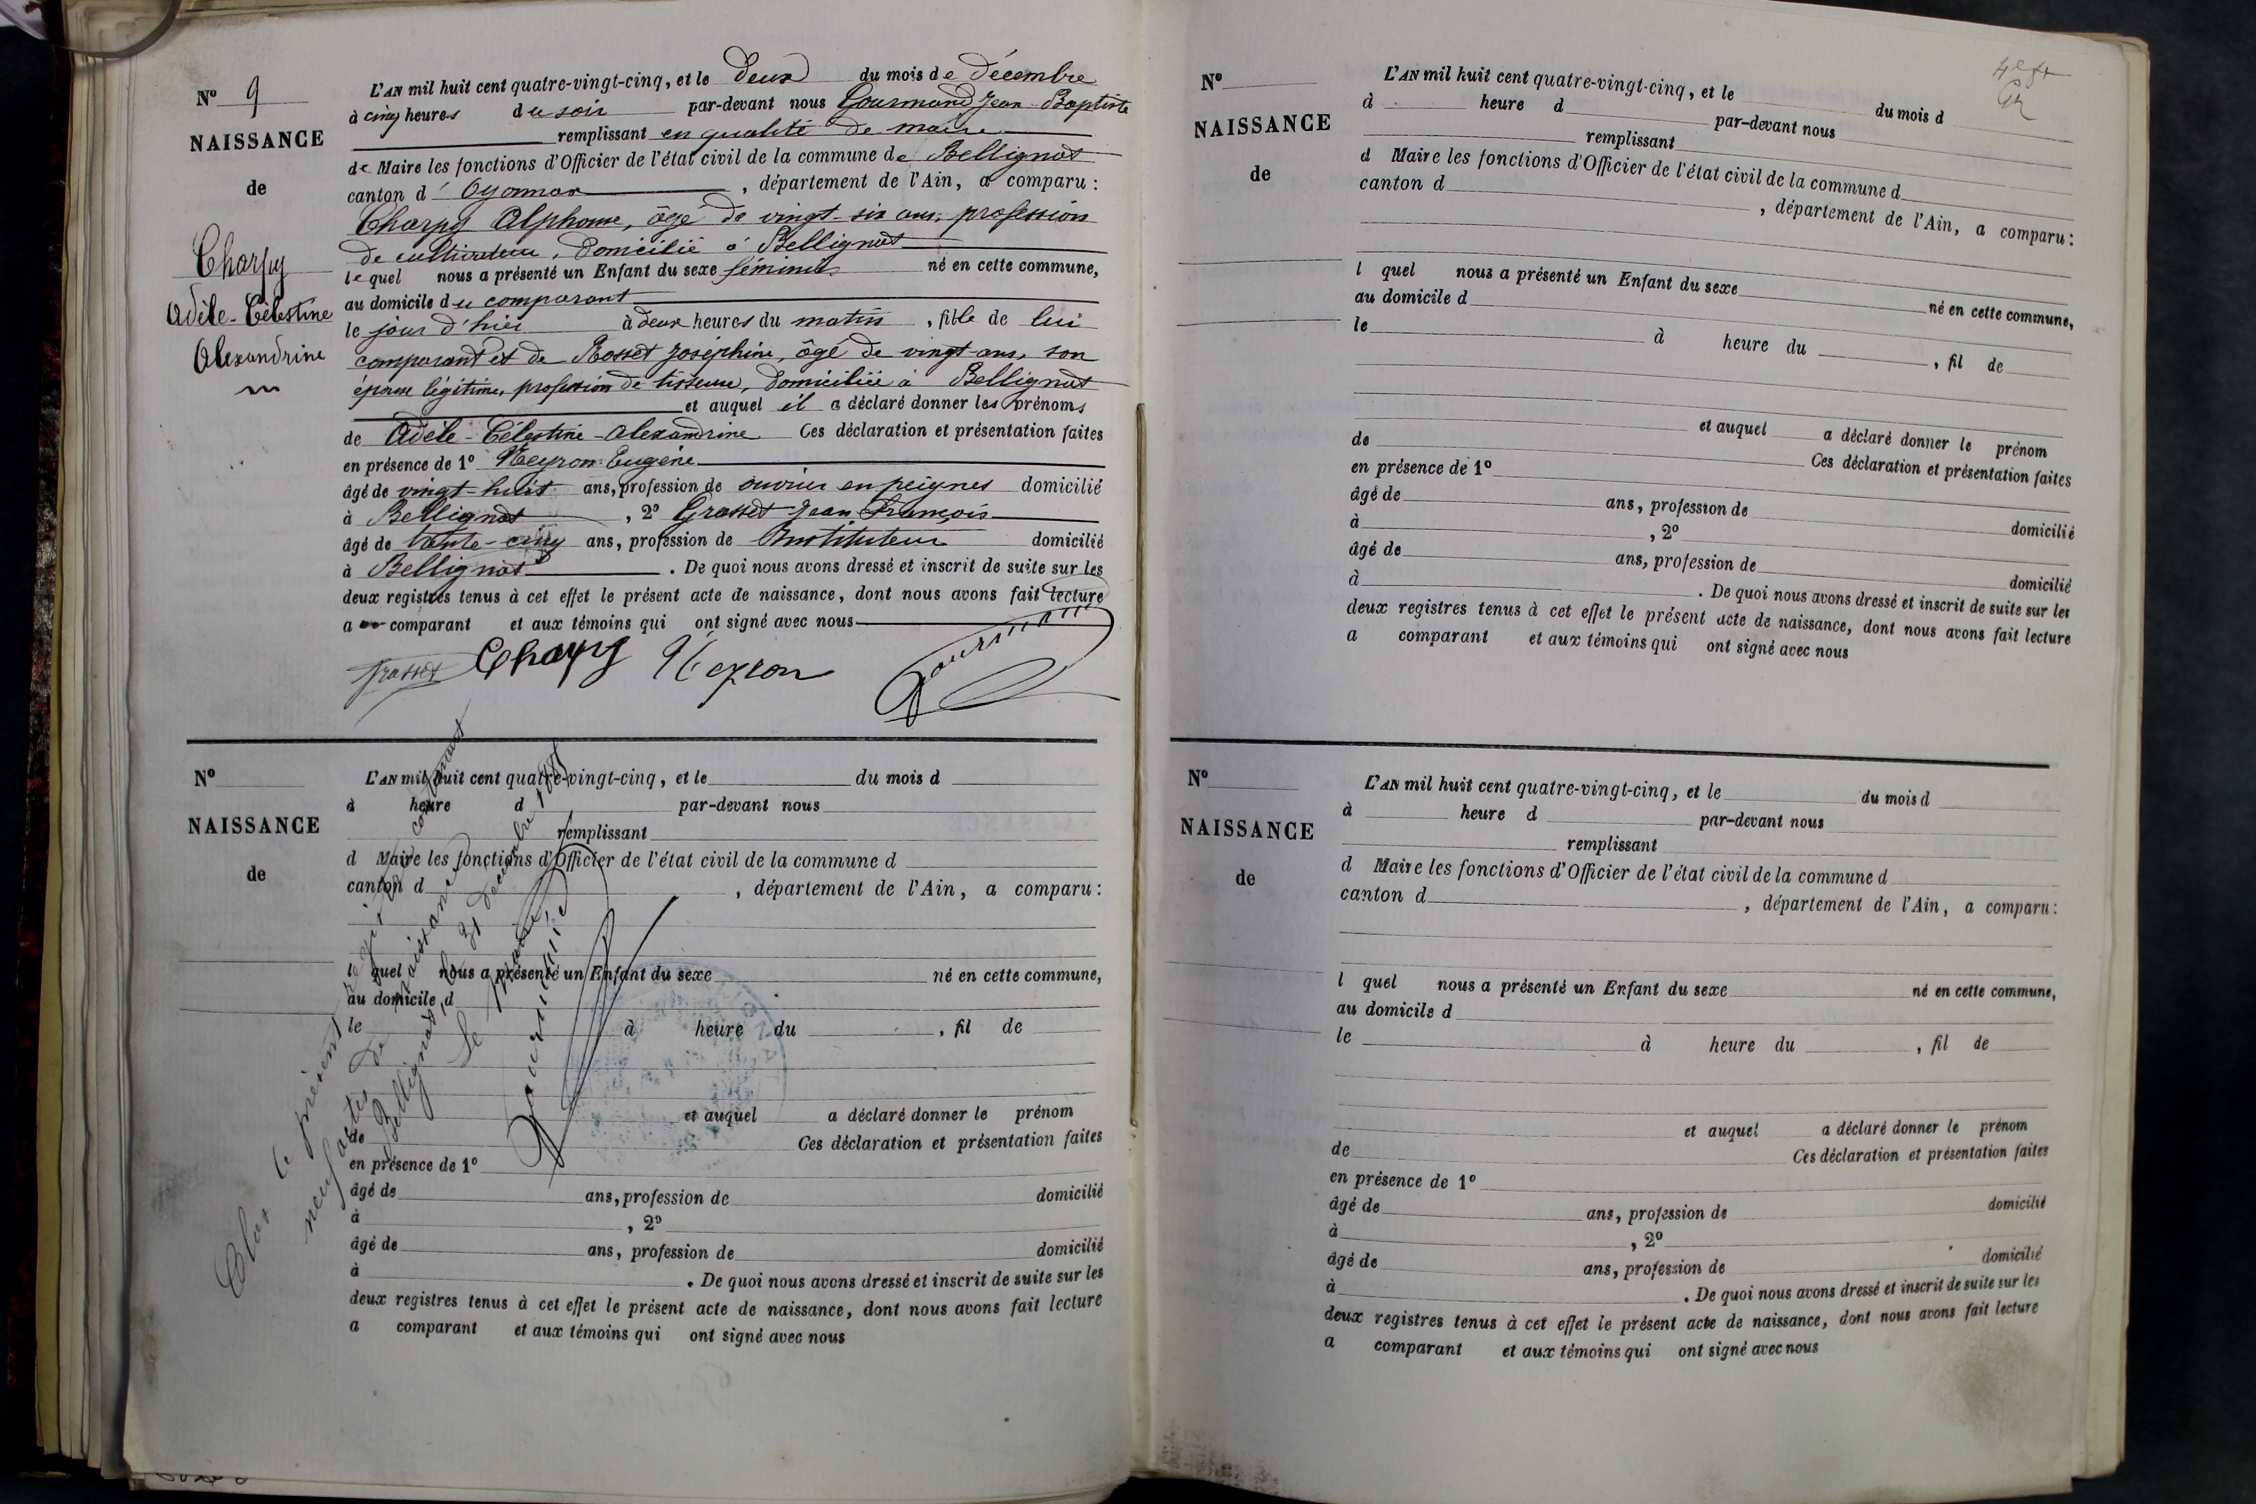 N° 9
NAISSANCE
de
Charpy
Adèle-Célestine
Alexandrine
L'AN mil huit cent quatre-vingt-cinq, et le deux du mois de décembre
à cinq heures du soir par-devant nous Gourmand Jean Baptiste
remplissant en qualité de maire
de Maire les fonctions d'Officier de l'état civil de la commune de Bellignat
canton d'Oyonnax, département de l'Ain, a comparu :
Charpy Alphonse, âgé de vingt-six ans, profession
de cultivateur, domicilié à Bellignat
lequel nous a présenté un Enfant du sexe féminin né en cette commune,
au domicile du comparant
le jour d'hier à deux heures du matin, fille de lui
comparant et de Rosset Joséphine, âgé de vingt ans, son
épouse légitime, profession de tisseuse, domiciliée à Bellignat
et auquel il a déclaré donner les prénoms
de Adèle-Célestine-Alexandrine Ces déclaration et présentation faites
en présence de 1° Neyron Eugène
âgé de vingt-huit ans, profession de ouvrier en peignes domicilié
à Bellignat, 2° Grasset Jean François
âgé de trente-cinq ans, profession de Instituteur domicilié
à Bellignat. De quoi nous avons dressé et inscrit de suite sur les
deux registres tenus à cet effet le présent acte de naissance, dont nous avons fait lecture
a comparant et aux témoins qui ont signé avec nous
Grasset Charpy Neyron Gourmand
N°
NAISSANCE
de
L'AN mil huit cent quatre-vingt-cinq, et le du mois d
à heure d par-devant nous
remplissant
d Maire les fonctions d'Officier de l'état civil de la commune d
canton d , département de l'Ain, a comparu :
l quel nous a présenté un Enfant du sexe né en cette commune,
au domicile d
le à heure du , fil de
et auquel a déclaré donner le prénom
de Ces déclaration et présentation faites
en présence de 1°
âgé de ans, profession de domicilié
à , 2°
âgé de ans, profession de domicilié
à . De quoi nous avons dressé et inscrit de suite sur les
deux registres tenus à cet effet le présent acte de naissance, dont nous avons fait lecture
a comparant et aux témoins qui ont signé avec nous
Clos le présent registre contenant
neuf actes de naissance
Bellignat, le 31 décembre 1885
Le Maire
Gourmand
N°
NAISSANCE
de
L'AN mil huit cent quatre-vingt-cinq, et le du mois d
à heure d par-devant nous
remplissant
d Maire les fonctions d'Officier de l'état civil de la commune d
canton d , département de l'Ain, a comparu :
l quel nous a présenté un Enfant du sexe né en cette commune,
au domicile d
le à heure du , fil de
et auquel a déclaré donner le prénom
de Ces déclaration et présentation faites
en présence de 1°
âgé de ans, profession de domicilié
à , 2°
âgé de ans, profession de domicilié
à . De quoi nous avons dressé et inscrit de suite sur les
deux registres tenus à cet effet le présent acte de naissance, dont nous avons fait lecture
a comparant et aux témoins qui ont signé avec nous
N°
NAISSANCE
de
L'AN mil huit cent quatre-vingt-cinq, et le du mois d
à heure d par-devant nous
remplissant
d Maire les fonctions d'Officier de l'état civil de la commune d
canton d , département de l'Ain, a comparu :
l quel nous a présenté un Enfant du sexe né en cette commune,
au domicile d
le à heure du , fil de
et auquel a déclaré donner le prénom
de Ces déclaration et présentation faites
en présence de 1°
âgé de ans, profession de domicilié
à , 2°
âgé de ans, profession de domicilié
à . De quoi nous avons dressé et inscrit de suite sur les
deux registres tenus à cet effet le présent acte de naissance, dont nous avons fait lecture
a comparant et aux témoins qui ont signé avec nous